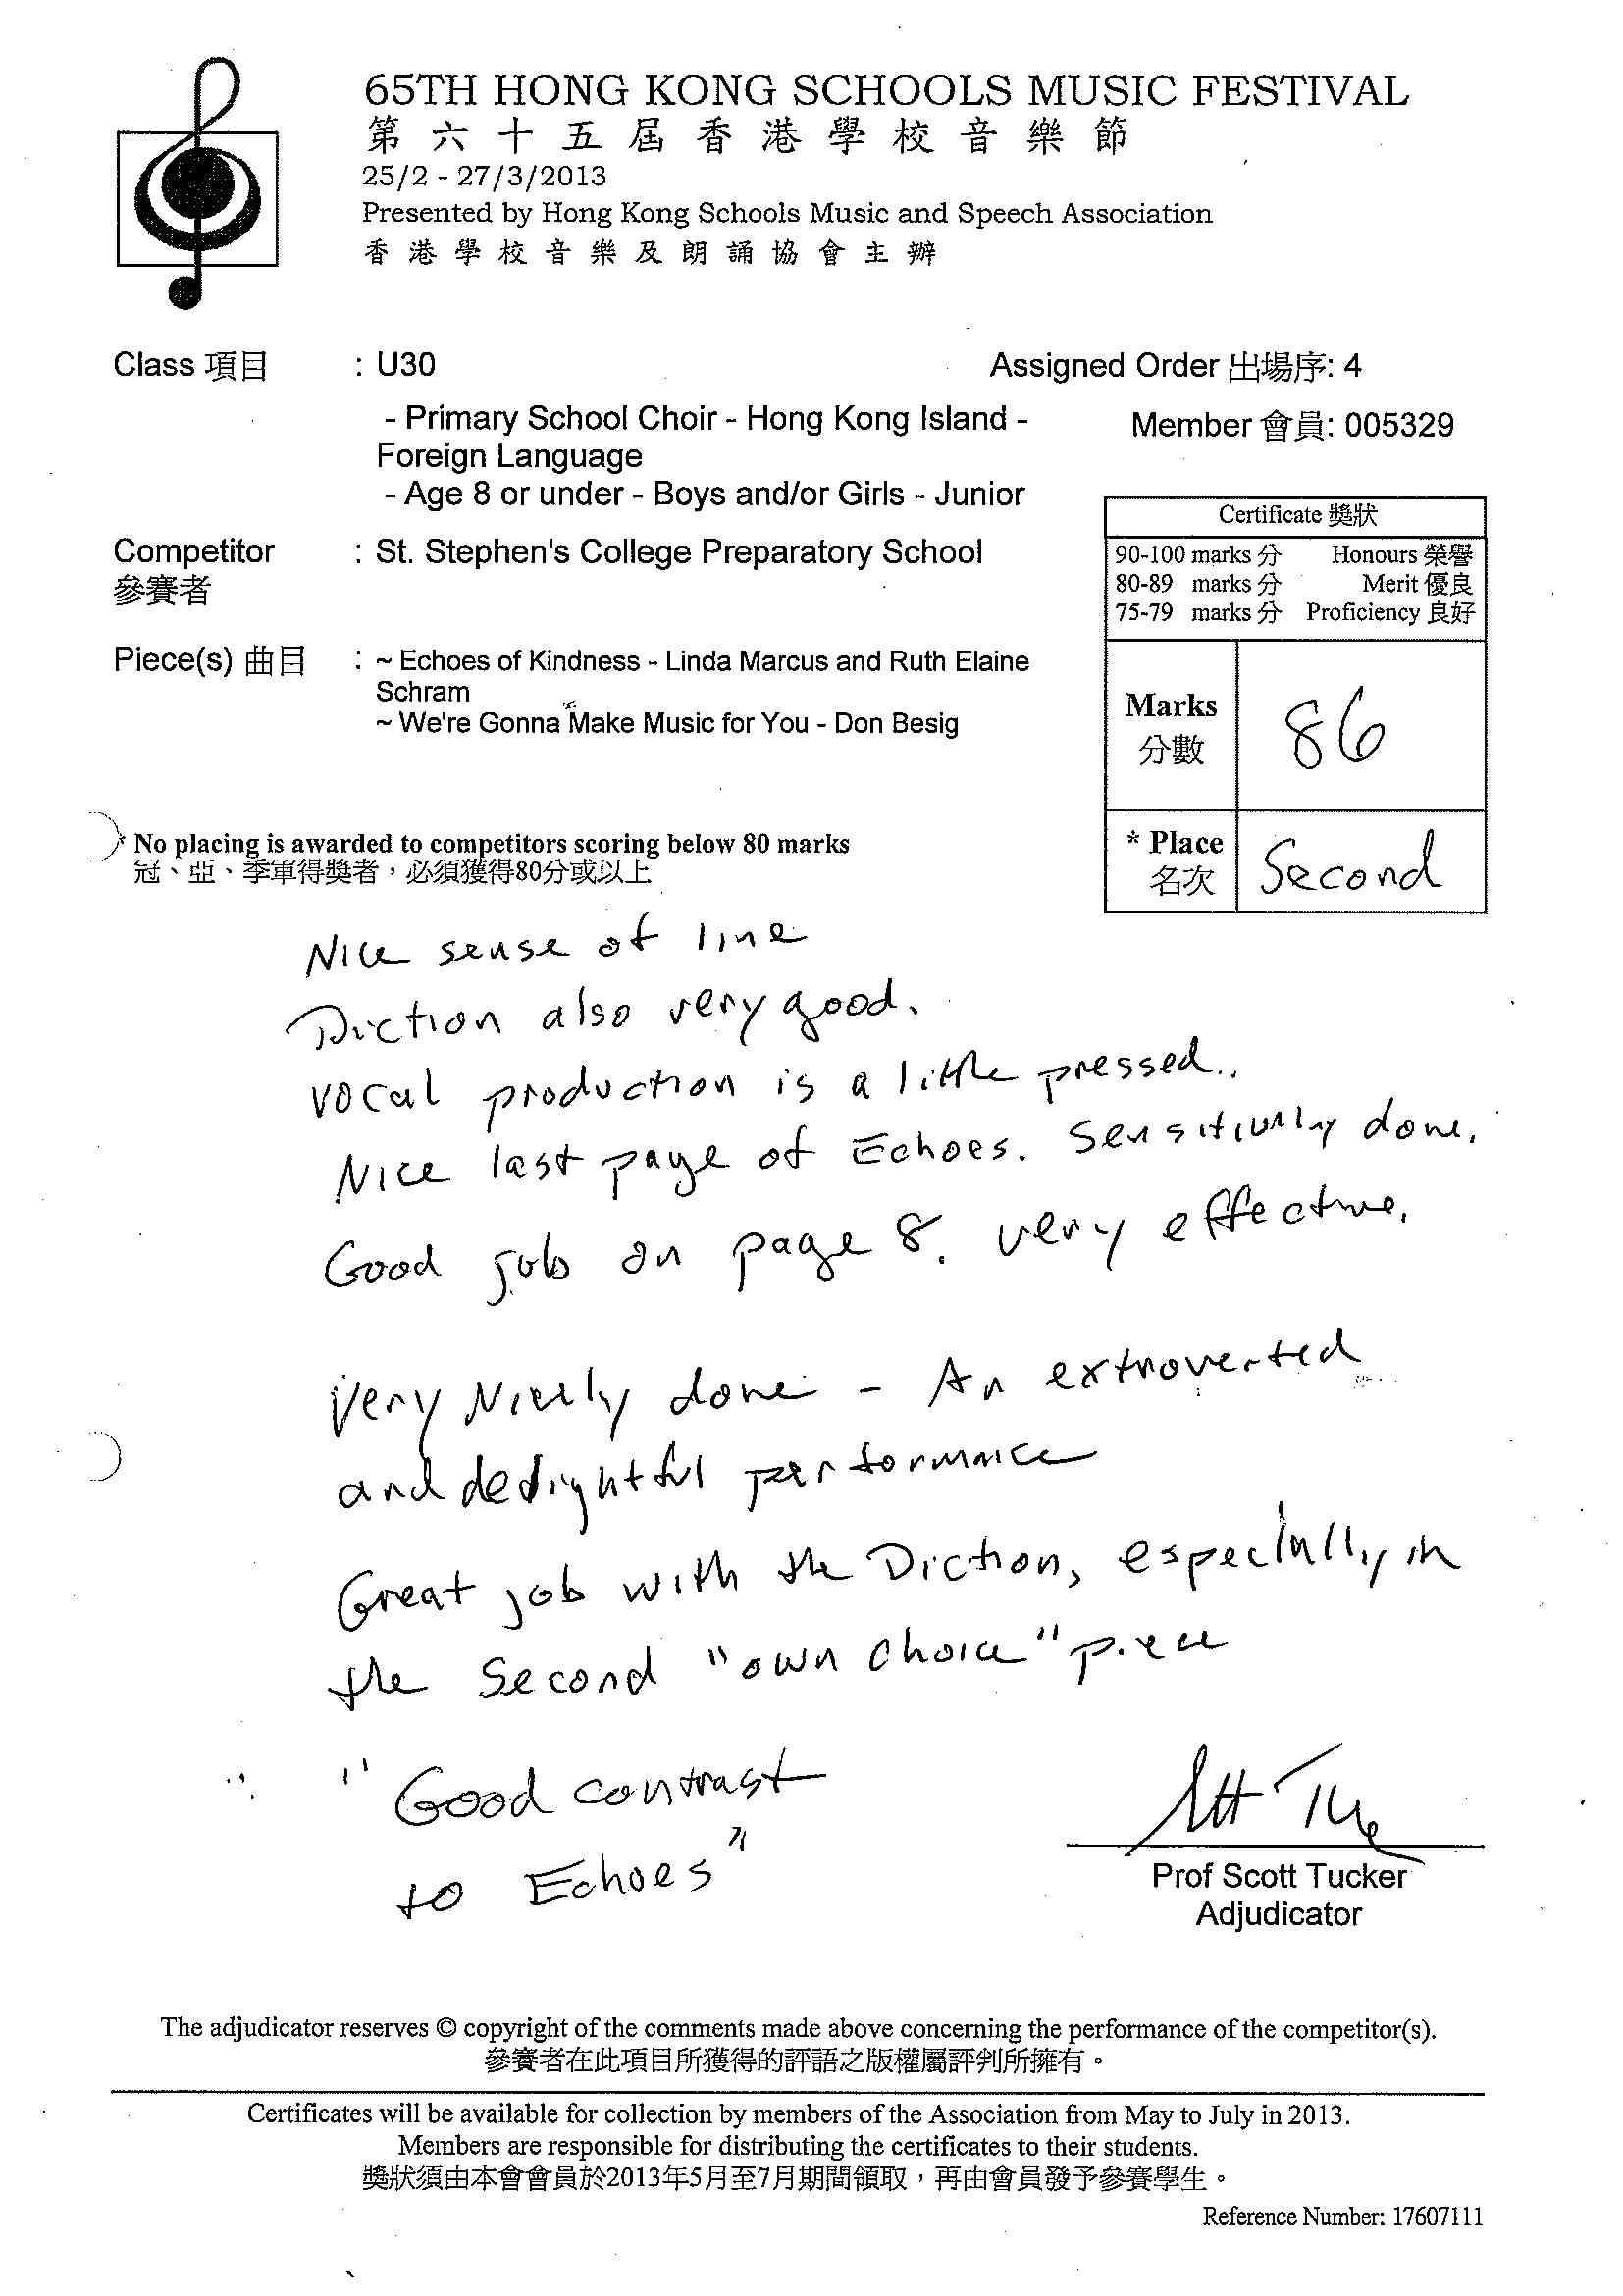 65TH HONG KONG SCHOOLS MUSIC FESTIVAL
第六十五屆香港學校音樂節
25/2 - 27/3/2013
Presented by Hong Kong Schools Music and Speech Association
香港學校音樂及朗誦協會主辦
Class 項目 : U30
Assigned Order 出場序: 4
- Primary School Choir - Hong Kong Island -
Foreign Language
- Age 8 or under - Boys and/or Girls - Junior
Member 會員: 005329
Competitor : St. Stephen's College Preparatory School
參賽者
Piece(s) 曲目 : ~ Echoes of Kindness - Linda Marcus and Ruth Elaine
Schram
~ We're Gonna Make Music for You - Don Besig
Certificate 獎狀
90-100 marks 分 Honours 榮譽
80-89 marks 分 Merit 優良
75-79 marks 分 Proficiency 良好
Marks 86
分數
* Place Second
名次
* No placing is awarded to competitors scoring below 80 marks
冠、亞、季軍得獎者，必須獲得80分或以上
Nice sense of line
Diction also very good.
vocal production is a little pressed..
Nice last page of Echoes. Sensitively done.
Good job on page 8. very effective.
Very Nicely done - An extroverted
and delightful performance
Great job with the Diction, especially in
the Second "own choice" piece
"Good contrast
to Echoes"
Prof Scott Tucker
Adjudicator
The adjudicator reserves © copyright of the comments made above concerning the performance of the competitor(s).
參賽者在此項目所獲得的評語之版權屬評判所擁有。
Certificates will be available for collection by members of the Association from May to July in 2013.
Members are responsible for distributing the certificates to their students.
獎狀須由本會會員於2013年5月至7月期間領取，再由會員發予參賽學生。
Reference Number: 17607111